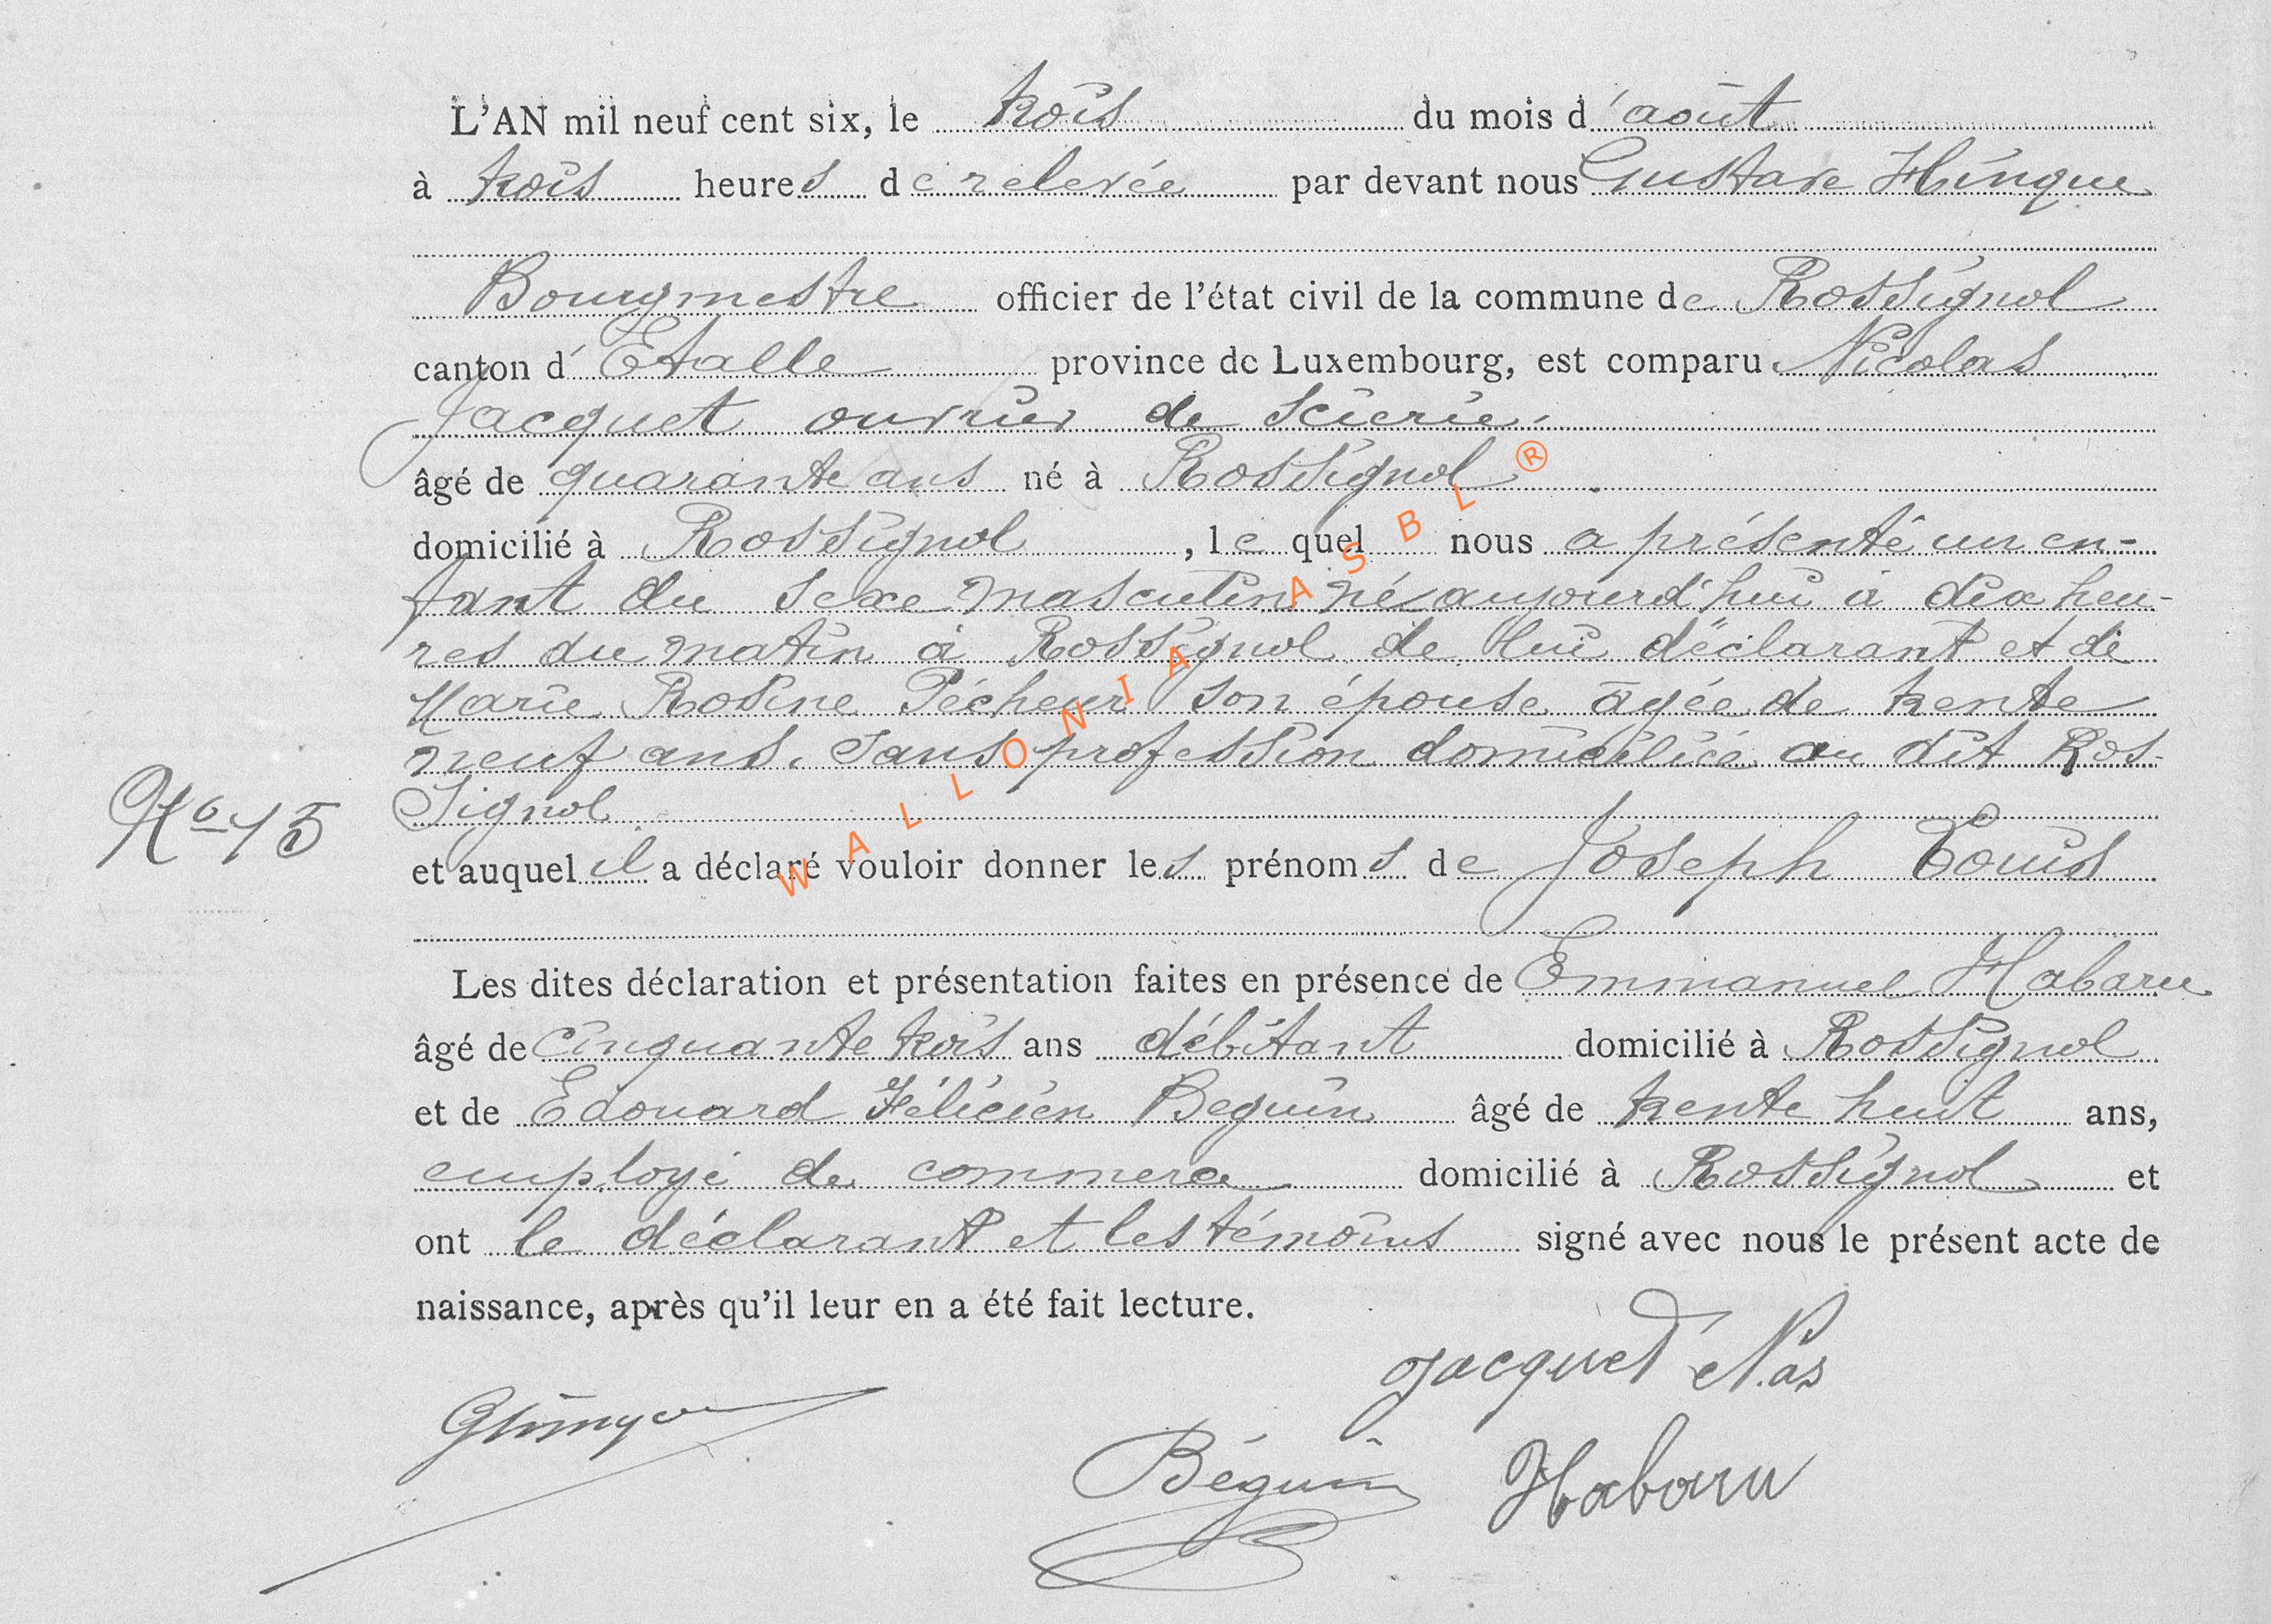 L'AN mil neuf cent six, le trois du mois d'août
à trois heures de relevée par devant nous Gustave Hinque
Bourgmestre officier de l'état civil de la commune de Rossignol
canton d'Etalle province de Luxembourg, est comparu Nicolas
Jacquet ouvrier de scierie.
âgé de quarante ans né à Rossignol
domicilié à Rossignol, le quel nous a présenté un en-
fant du sexe masculin né aujourd'hui à dix heu-
res du matin à Rossignol de lui déclarant et de
Marie Rosine Pécheur son épouse âgée de trente
neuf ans, sans profession domiciliée au dit Ros-
signol
No 15
et auquel il a déclaré vouloir donner les prénoms de Joseph Louis
Les dites déclaration et présentation faites en présence de Emmanuel Habaru
âgé de cinquante trois ans débitant domicilié à Rossignol
et de Edouard Félicien Beguin âgé de trente huit ans,
employé de commerce domicilié à Rossignol et
ont le déclarant et les témoins signé avec nous le présent acte de
naissance, après qu'il leur en a été fait lecture.
Jacquet Nas
Béguin Habaru
WALLONIA ASBL ®